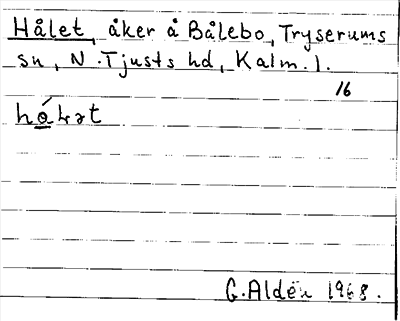 Hålet, åker å Bålebo, Tryserums
sn, N. Tjusts hd, Kalm. l.
16
hó̲ⱡət
G. Aldén 1968.